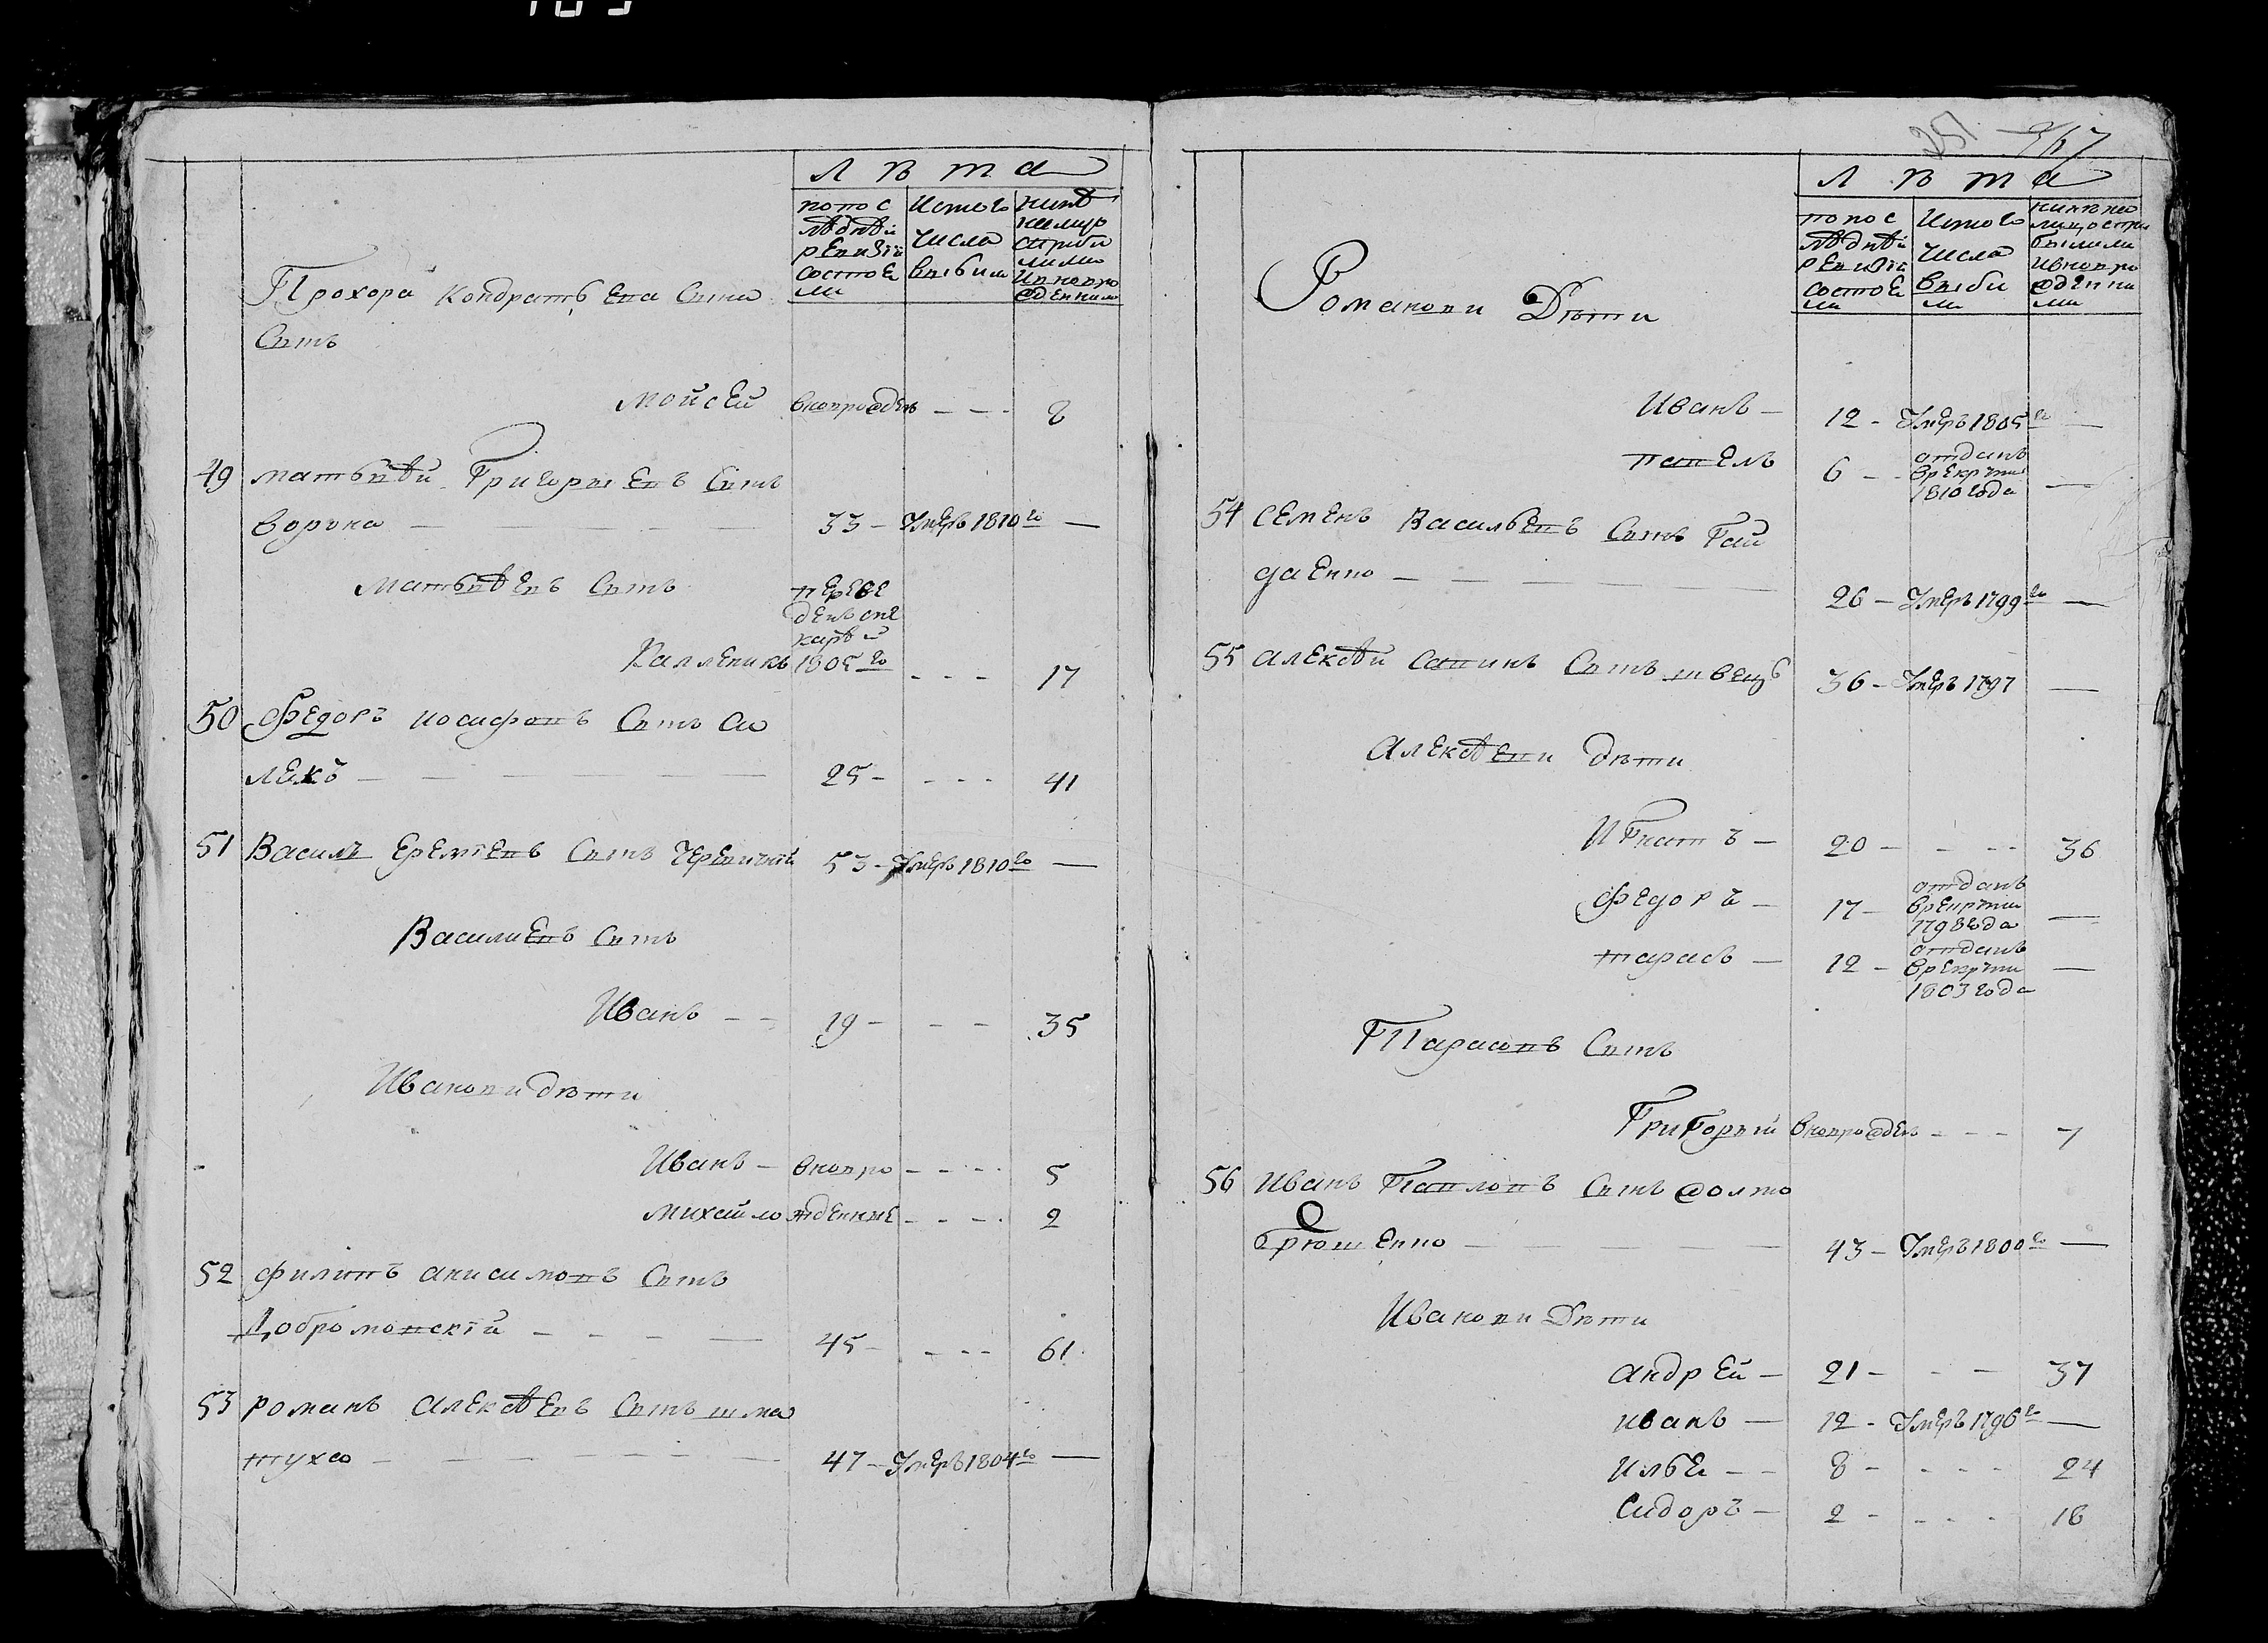 Лѣта
попос лѣднѣй ревизіи состоели
Истого числа выбили
Прохора Кондратьева Сына
Сынъ
Мойсей вновророжденъ - - - 8
49 Матьвѣй Григорьевъ Сынъ
Ворона — 33 - Умеръ 1810го —
Матьвѣевъ Сынъ
переве
денъ
Калленикъ 1805го - - - 17
50 Федоръ Иосифовъ Сынъ Со
лекъ — 25 - - - - 41
51 Василъ Еремѣевъ Сынъ 53 - Умеръ 1810го —
Василиевъ Сынъ
Иванъ - - 19 - - - 35
Иванови дѣти
Иванъ - вновро - - - - 5
Михайло жденные - - - - 2
52 Филипъ Анисимовъ Сынъ
Добромовскій - - - — 45 - - - - 61
53 Романъ Алексѣевъ Сынъ Шма
тухо - — 47 - Умеръ 1804го —
251
Лѣта
попос лѣднѣй ревизіи состоели
Истого числа выбили
Романови Дѣти
Иванъ - 12 - Умеръ 1805го —
Павелъ 6 - - отданъ врекруты 1810 года —
54 Семенъ Васильевъ Сынъ Гай
даенко — 26 - Умеръ 1799го —
55 Алексѣй Савинъ Сынъ Швецъ 36 - Умеръ 1797 —
Алексѣеви дѣти
Игнатъ - 20 - - - - 36
Федоръ - 17 - отданъ врекруты 1798 года —
Тарасъ - 12 - отданъ врекруты 1803 года —
Тарасовъ Сынъ
Григорый вновророжденъ - - - 7
56 Иванъ Павловъ Сынъ Жолто
брюшенко — 43 - Умеръ 1800го —
Иванови Дѣти
Андрей - 21 - - - 37
Иванъ - 12 - Умеръ 1796го —
Илье - - 8 - - - - 24
Сидоръ - 2 - - - - 18